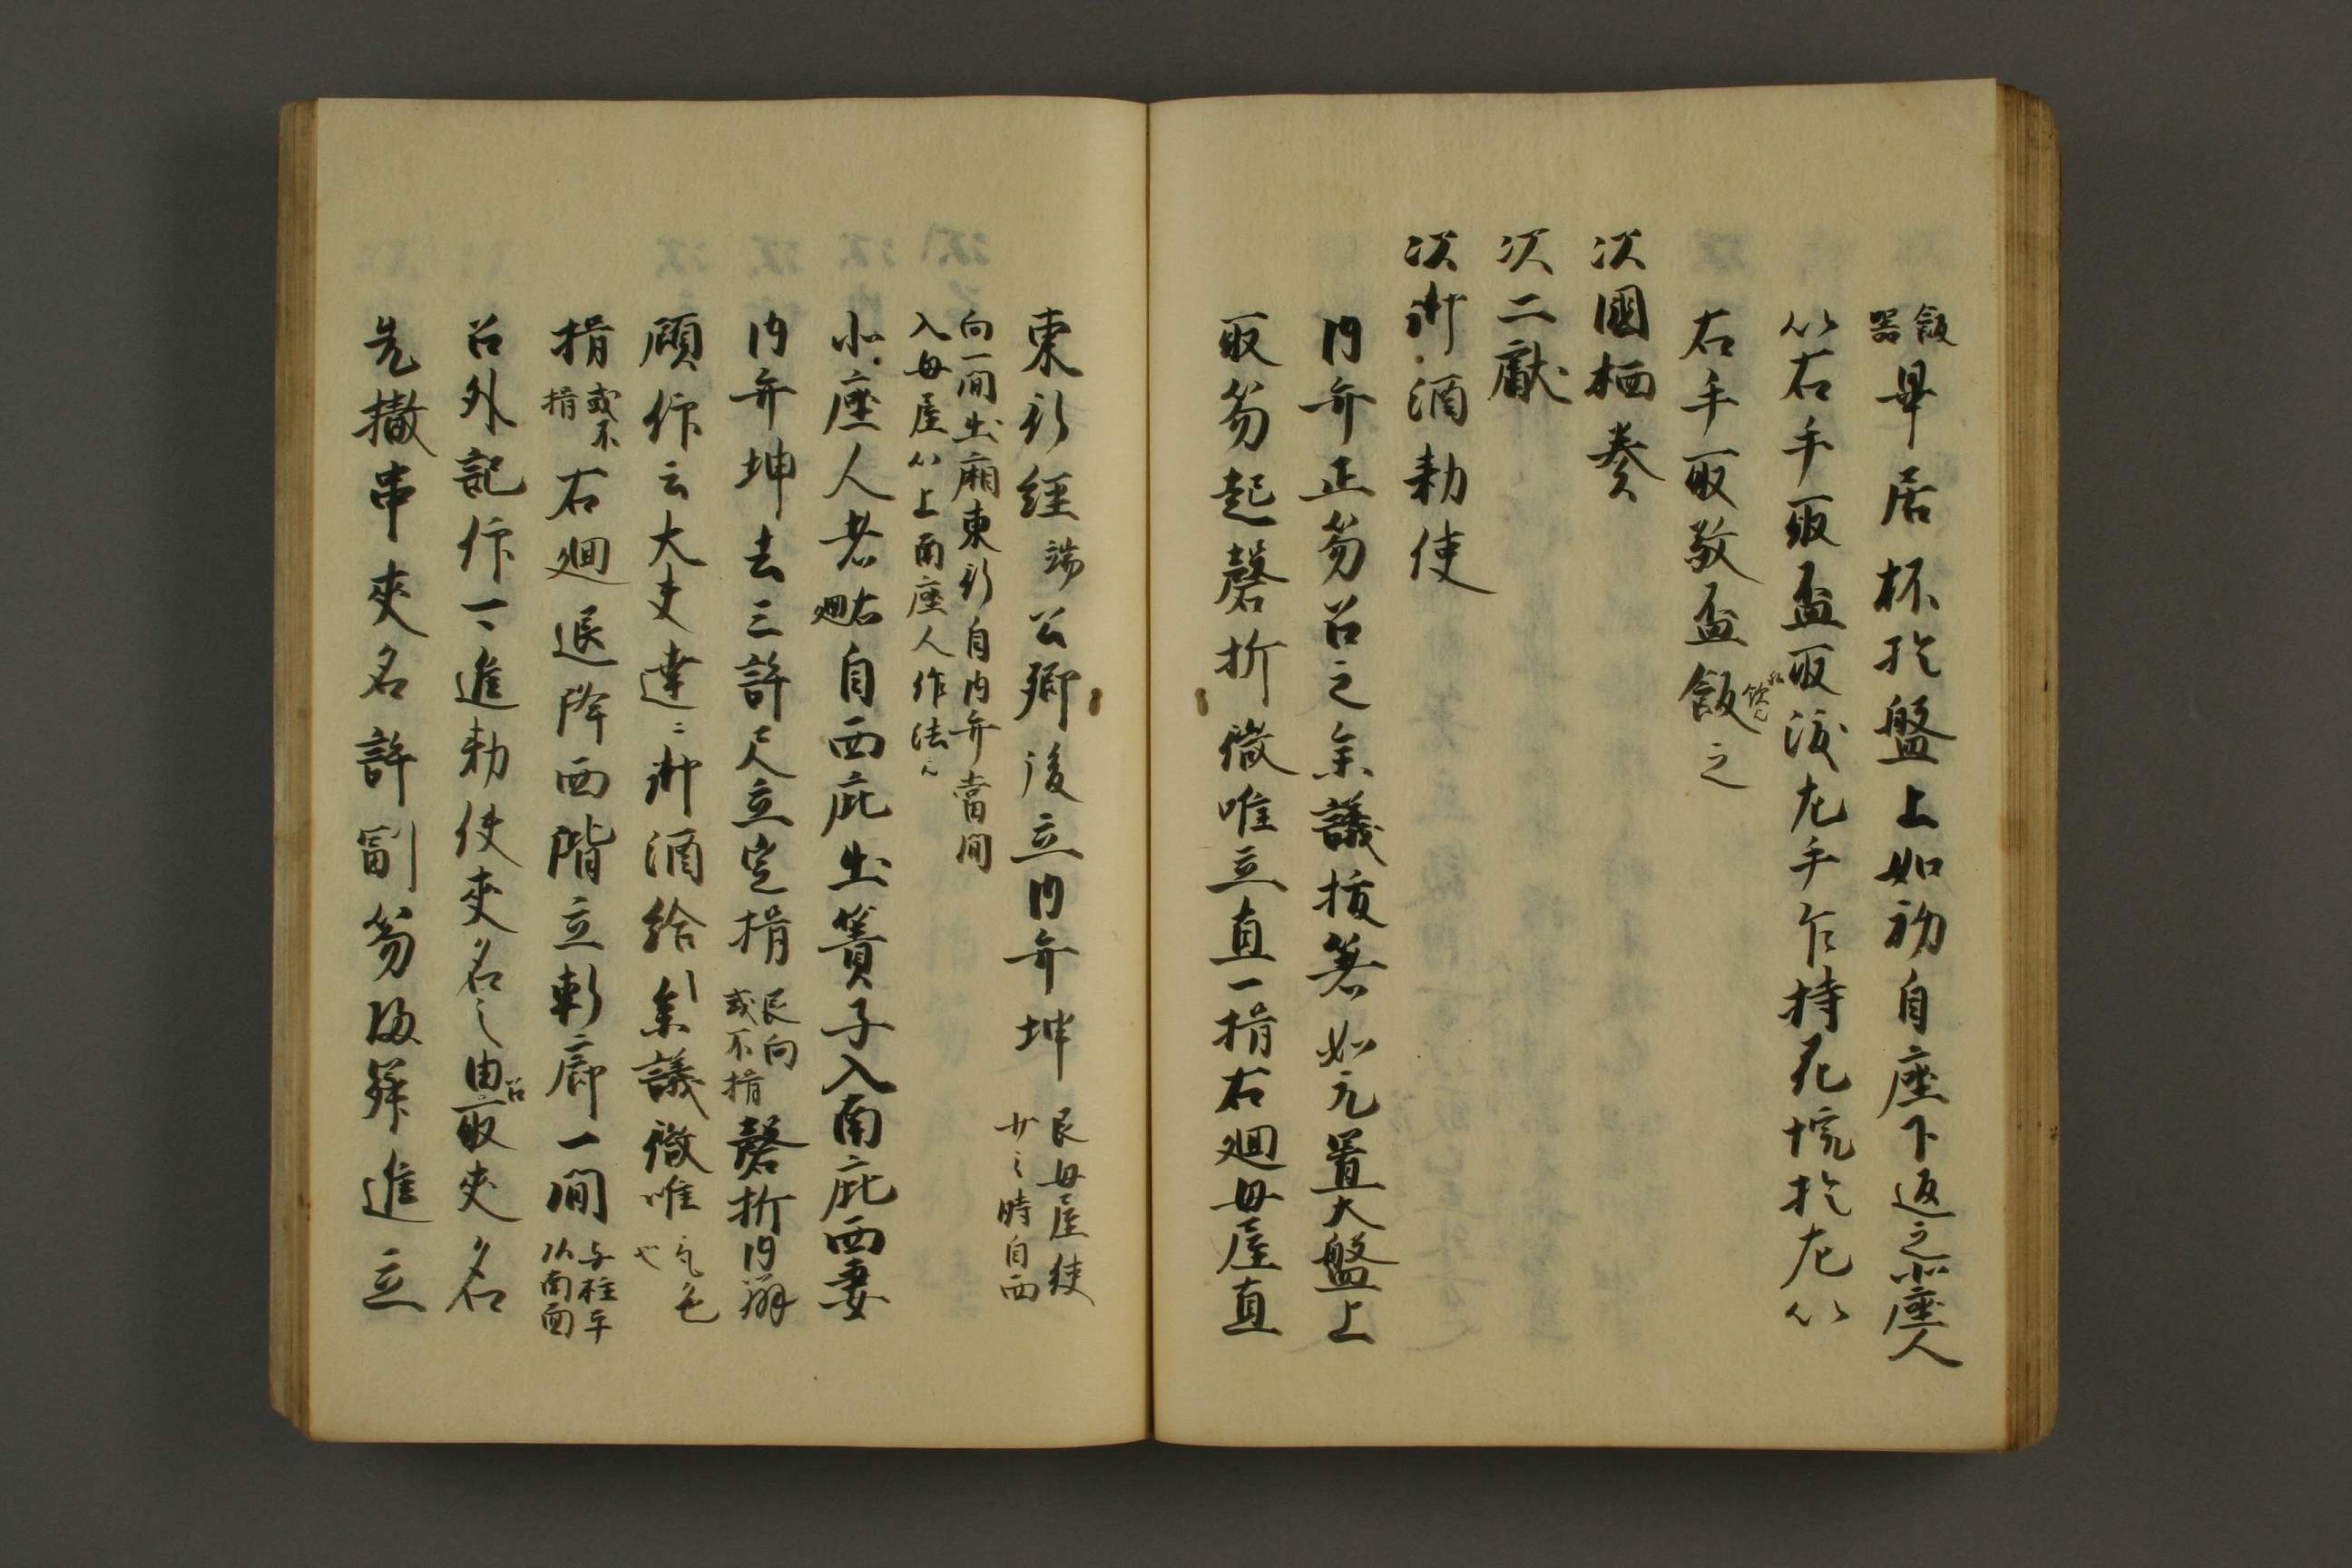 飯器畢居杯於盤上如初自座下返之北座人
以右手取盃取渡左手乍持瓦垸於左以
右手取敬盃飯之
次國栖奏
次二獻
次御酒勅使
内弁正笏召之参議抜箸如元置大盤上
取笏起磬折微唯立直一揖右廻母屋直
東行経端公卿後立内弁坤 艮母屋使廿之時自西
向一間出廂東行自内弁當間
入母屋以上南座人作法也
北座人者右廻自西庇出簀子入南庇西妻
内弁坤去三許尺立定揖艮向或不揖磬折内弁
顧仰云大夫達ニ御酒給参議微唯気色也
揖或不揖右廻退降西階立軒廊一間与柱平以南面
召外記仰一々進勅使夾名之由召取夾名
先撤串夾名許副笏昇進立